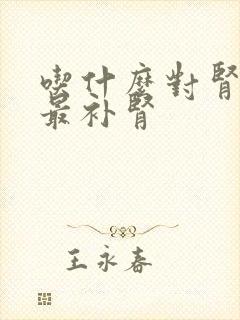 喫什麼對腎
最补腎
王永春